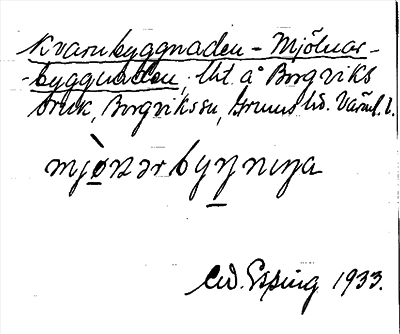 Kvarnbyggnaden - Mjölnar-
-byggnaden, lht. å Borgviks
bruk, Borgviks sn, Grums hd. Värml. l.
mjòṉarbyṉiŋa
Ed. Esping 1933.